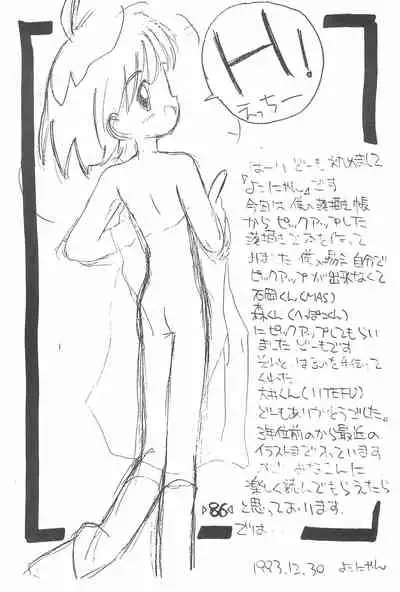 H!
えっちー
はーい どーも 初めまして
「よこにゃん」です
今回は 僕の落描き帳
から ピックアップした
落描き
僕の場合 自分で
ピックアップが出来なくて
石岡くん(MAS)
森くん(へっぽこくん)
にピックアップしてもらい
ました どーもです
手伝って
くれた
大井くん(11TEFU)
どーもありがとうでした。
3年位前のから最近の
イラストまで入っています
楽しく読んでもらえたら
と思っております.
では...
▷86◁
1993.12.30 よこにゃん